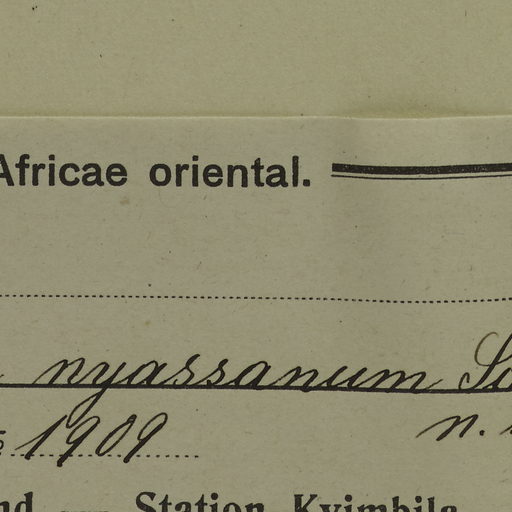 Africae oriental.
nyassanum
1909 n.
Station Kyimbila